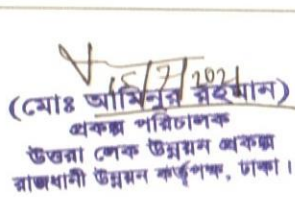 15/7/2021
(মোঃ আমিনুর রহমান)
প্রকল্প পরিচালক
উত্তরা লেক উন্নয়ন প্রকল্প
রাজধানী উন্নয়ন কর্তৃপক্ষ, ঢাকা।